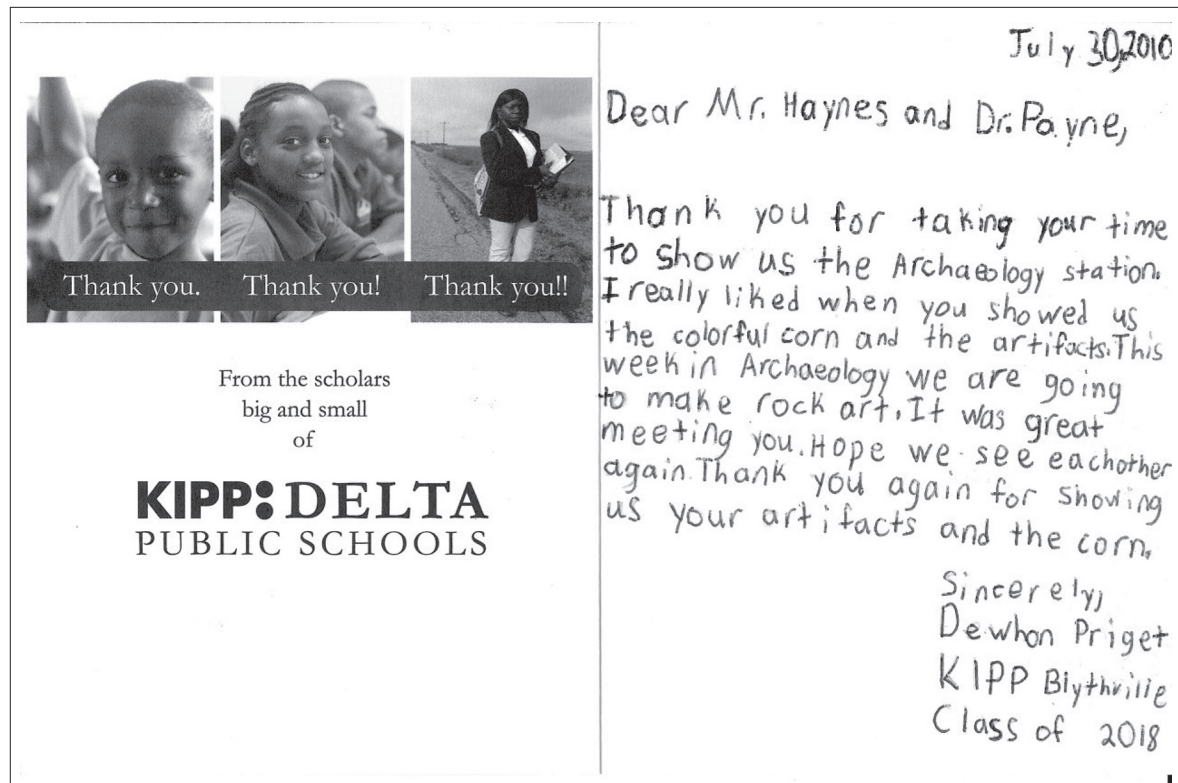 Thank you. Thank you! Thank you!!
From the scholars
big and small
of
KIPP: DELTA
PUBLIC SCHOOLS
July 30, 2010
Dear Mr. Haynes and Dr. Payne,
Thank you for taking your time
to show us the Archaeology station.
I really liked when you showed us
the colorful corn and the artifacts. This
week in Archaeology we are going
to make rock art. It was great
meeting you. Hope we see eachother
again. Thank you again for showing
us your artifacts and the corn.
Sincerely,
Dewhon Priget
KIPP Blythville
Class of 2018